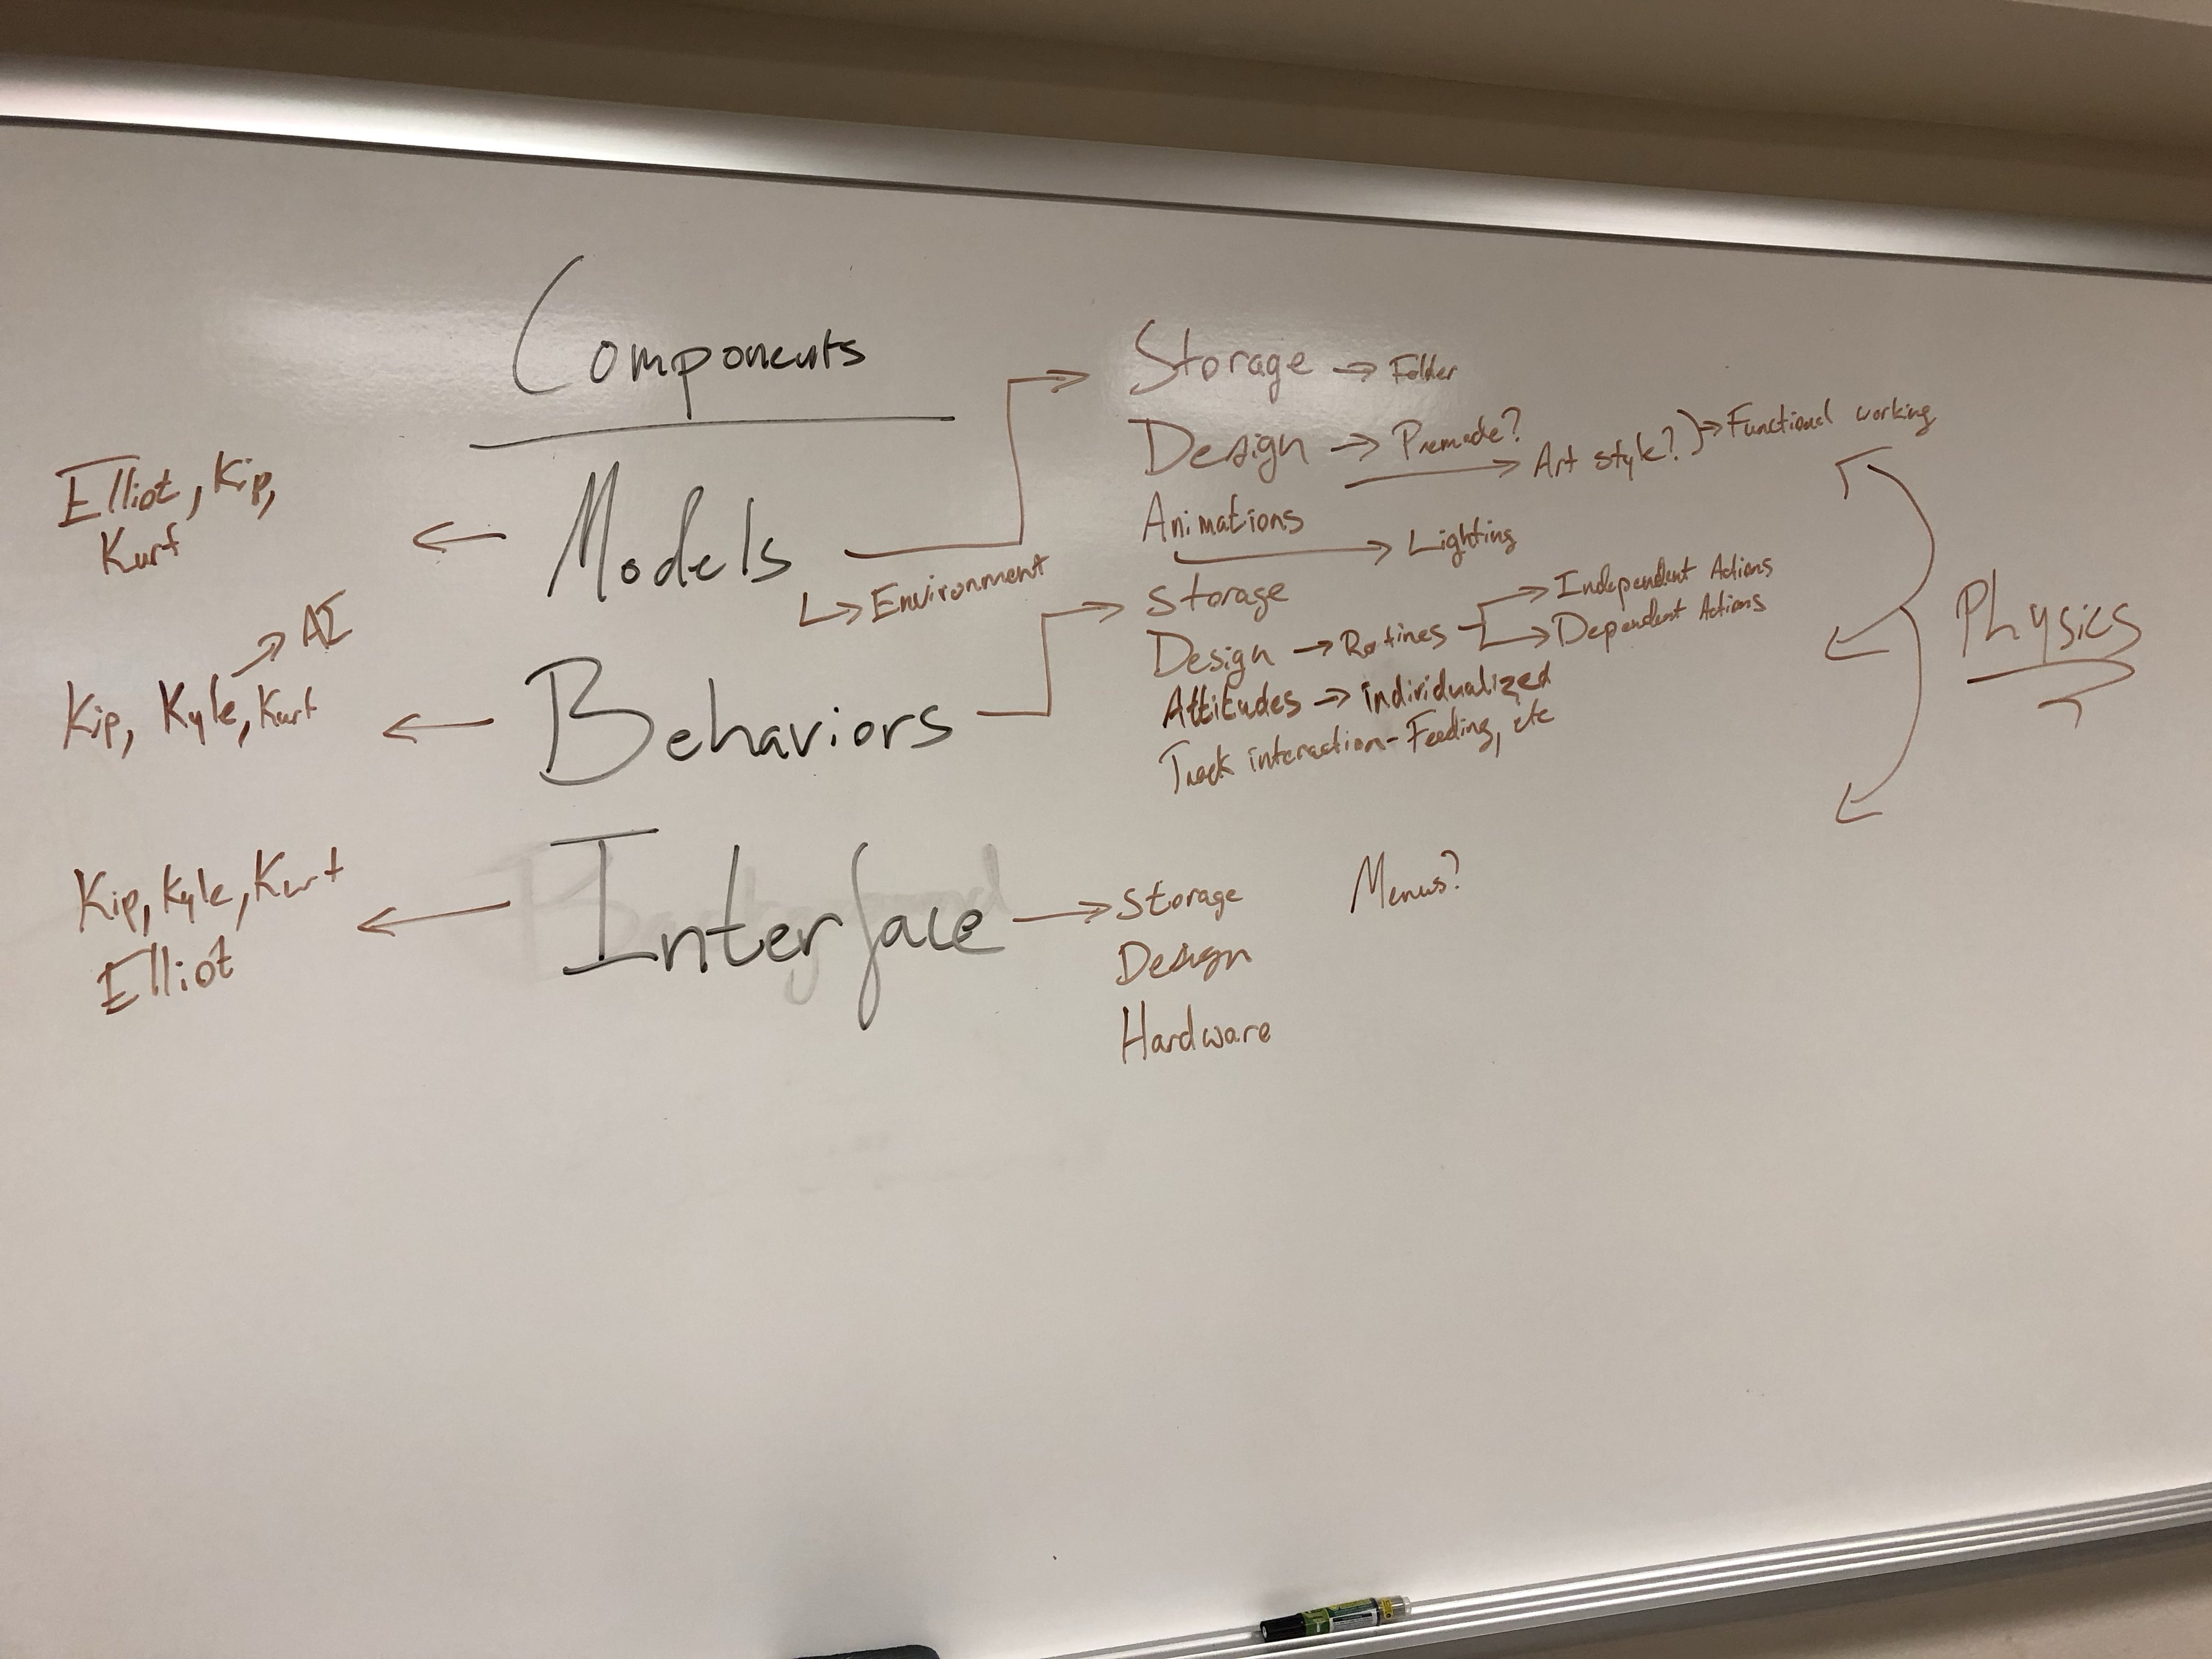 Components
Elliot, Kip,
Kurt
Models
Environment
Storage → Folder
Design → Premade?
Art style? → Functional working
Animations
Lighting
AI
Kip, Kyle, Kurt
Behaviors
Storage
Design → Rotines
Independent Actions
Dependent Actions
Attitudes → individualized
Track interaction - Feeding, etc
Physics
Kip, Kyle, Kurt
Elliot
Interface
Storage
Menus?
Design
Hardware